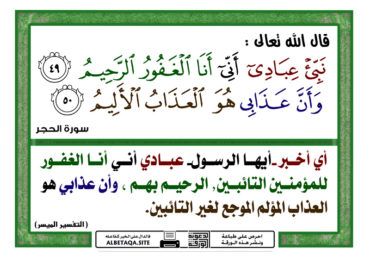 قال الله تعالى :
نَبِّئْ عِبَادِيٓ أَنِّيٓ أَنَا ٱلْغَفُورُ ٱلرَّحِيمُ ٤٩
وَأَنَّ عَذَابِي هُوَ ٱلْعَذَابُ ٱلْأَلِيمُ ٥٠
سورة الحجر
أي أخبر -أيها الرسول- عبادي أني أنا الغفور
للمؤمنين التائبين, الرحيم بهم ، وأن عذابي هو
العذاب المؤلم الموجع لغير التائبين.
( التفسير الميسر)
فالدال على الخير كفاعله
ALBETAQA.SITE
احرص على طباعة
ونشر هذه الورقة